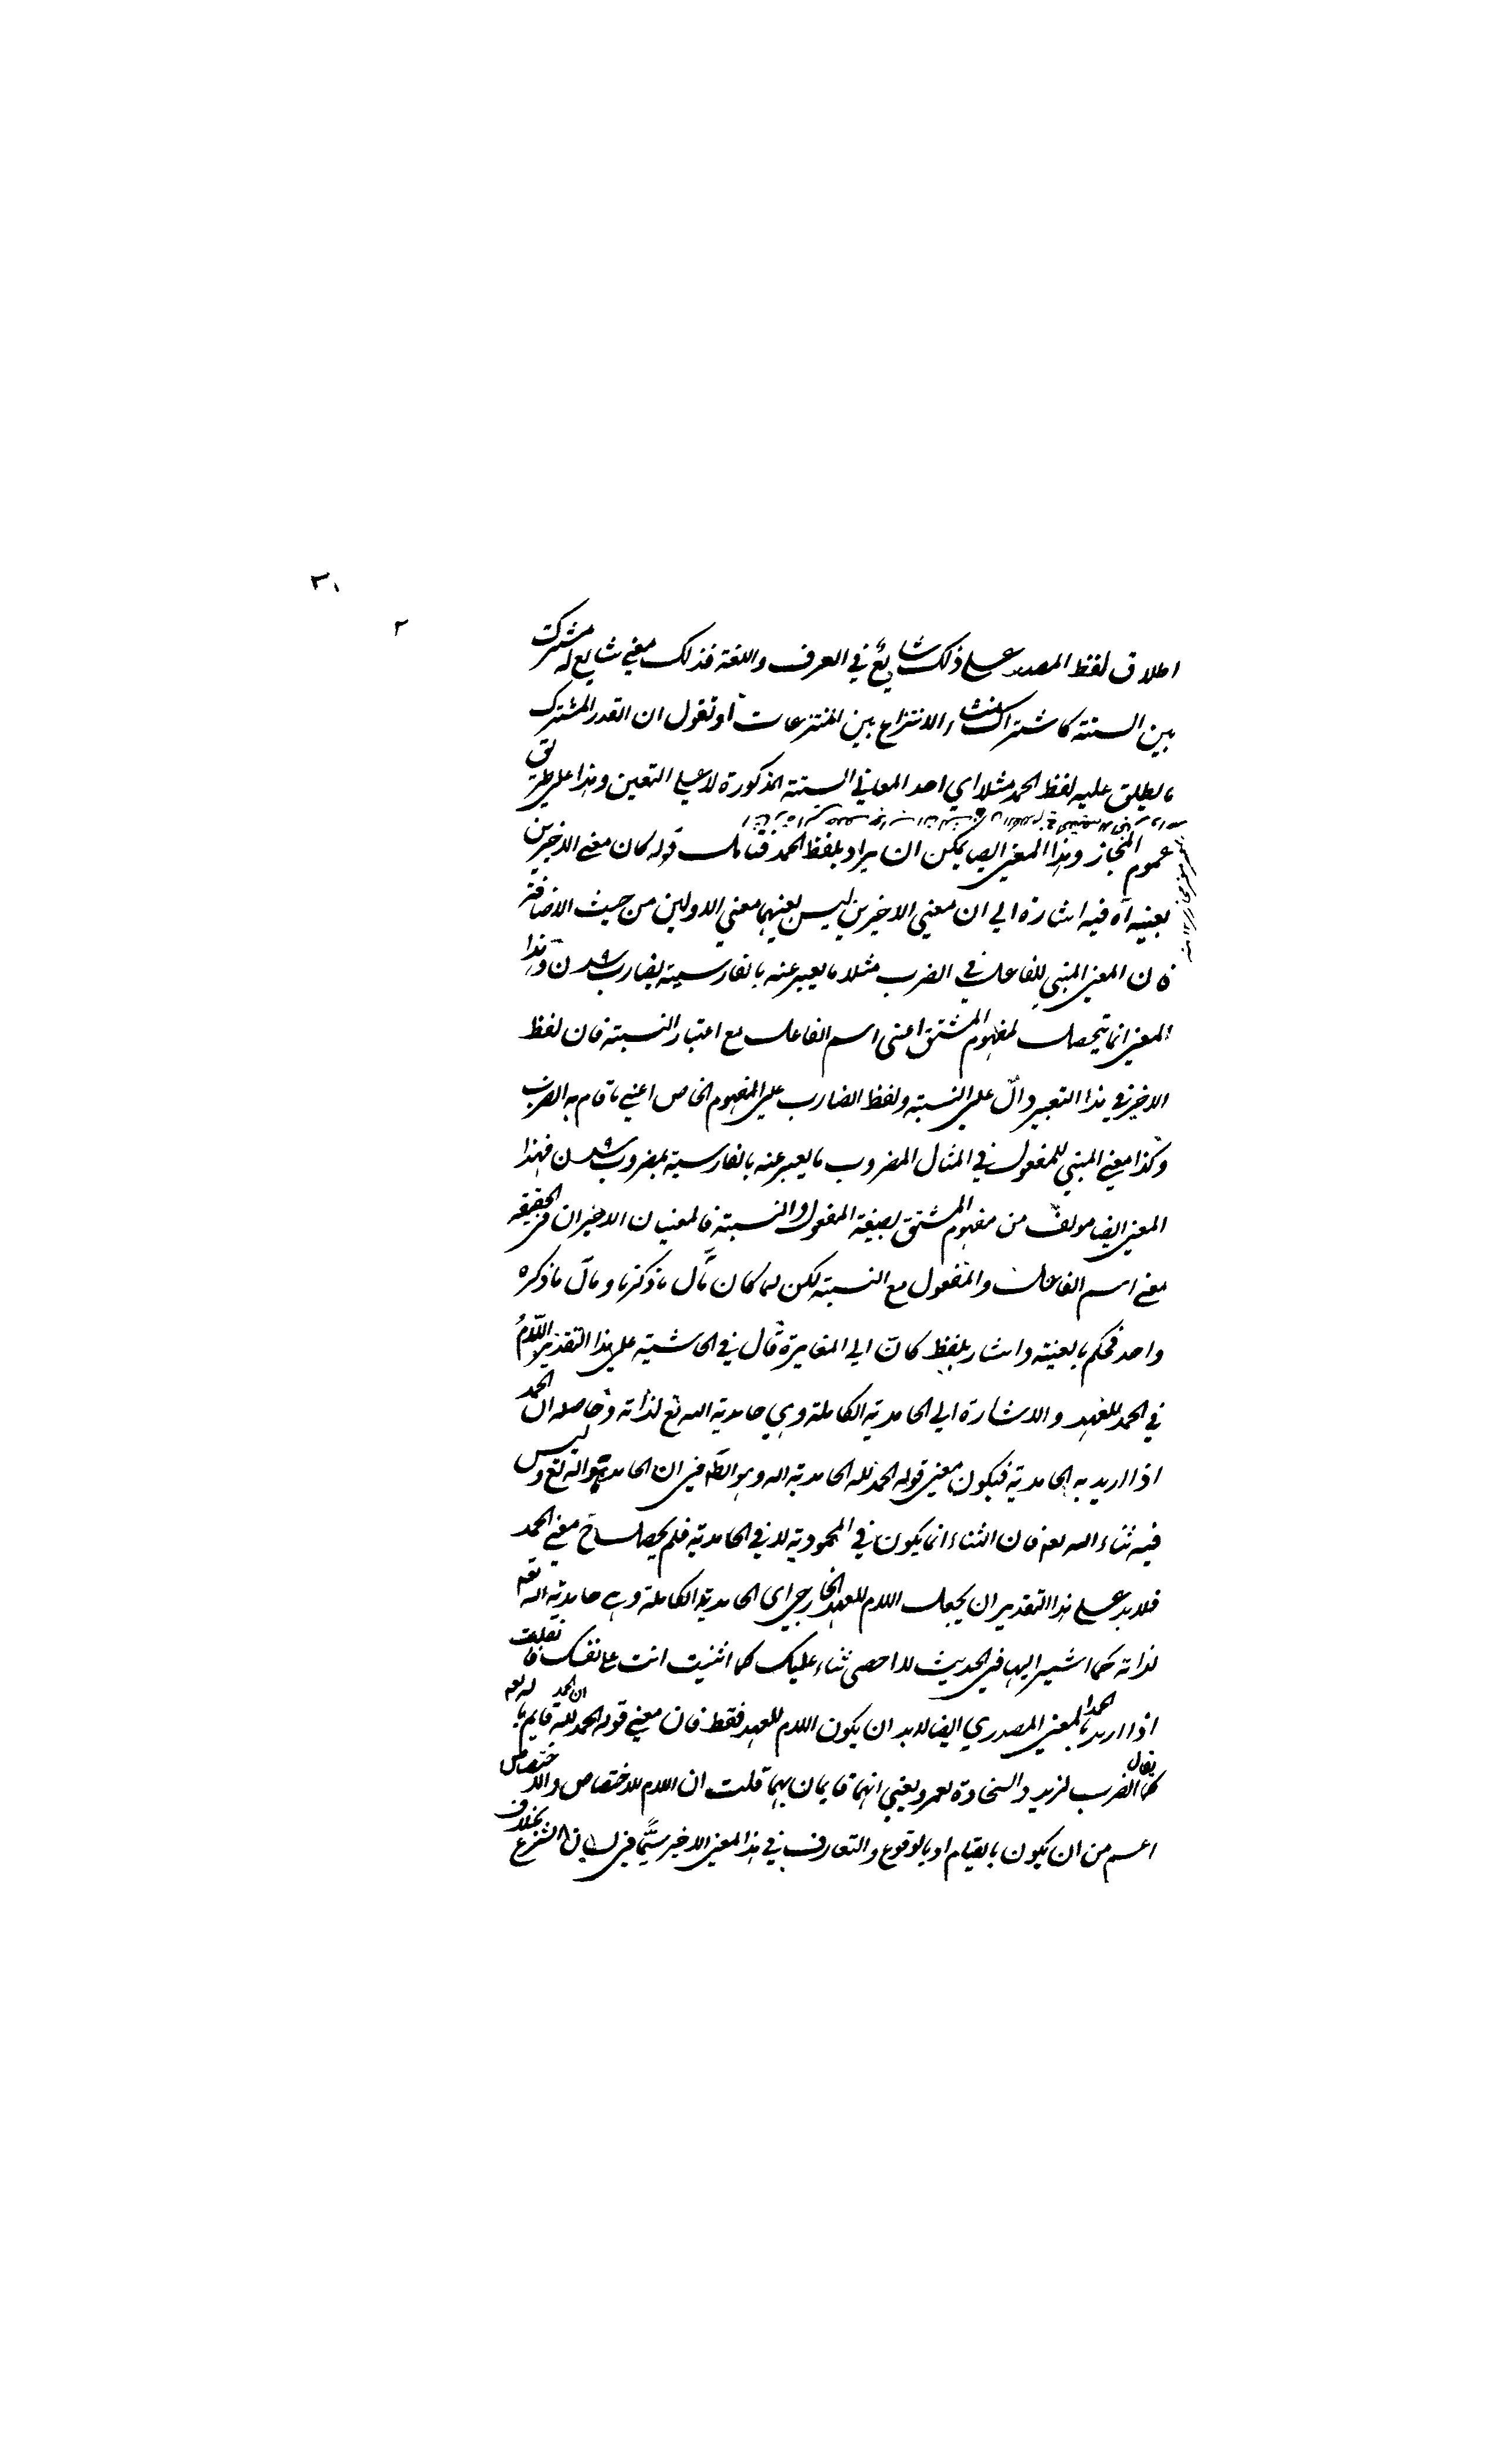 ٣١
٢
اطلاق لفظ المصدر على ذلك شايع في العرف واللغة فذلك معني شايع له مشترك
بين الستة كاشتراك منشاء الانتزاع بين المنتزعات او نقول ان القدر المشترك
ما يطلق عليه لفظ الحمد مثلا اي احد المعاني الستة المذكورة لا علي التعين وهذا علي طريق
عموم المجاز وهذا المعني ايضا يمكن ان يراد بلفظ الحمد فتامل قوله كان معني الاخيرين
بعينه آه فيه اشارة الي ان معني الاخيرين ليس بعينهما معني الاولين من حيث الاضافة
فان المعني المبني للفاعل في الضرب مثلا ما يعبر عنه بالفارسية بضارب شدن وهذا
المعني انما يتحصل لمفهوم المشتق اعني اسم الفاعل مع اعتبار النسبة فان لفظ
الاخير في هذا التعبير دالّ علي النسبة ولفظ الضارب علي المفهوم الخاص اعني ما قام به الضرب
وكذا معني المبني للمفعول في المثال المضروب ما يعبر عنه بالفارسية بمضروب شدن فهذا
المعني ايضا مولف من مفهوم المشتق بصيغة المفعول والنسبة فالمعنيان الاخيران في الحقيقة
معني اسم الفاعل والمفعول مع النسبة لكن لما كان مآل ما ذكرنا ومآل ما ذكره
واحد فحكم بالعينية واشار بلفظ كان الي المغايرة قال في الحاشية علي هذا التقدير اللام
في الحمد للعهد والاشارة الي الحامدية الكاملة وهي حامدية الله تع لذاته وحاصله ان الحمد
اذا اريد به الحامدية فيكون معني قوله الحمد لله الحامدية الله وهو الظ في ان الحامد هو الله تع وليس
فيه ثناء الله تعه فان الثناء انما يكون في المحمودية لا في الحامدية فلم يحصل ح معني الحمد
فلا بد علي هذا التقدير ان يجعل اللام للعهد الخارجي اي الحامدية الكاملة وهي حامدية الله تعه
لذاته كما اشير اليها في الحديث لا احصي ثناء عليك كما اثنيت انت علي نفسك فان قلت
اذا اريد بالحمد المعني المصدري ايضا لا بد ان يكون اللام للعهد فقط فان معني قوله الحمد لله ان الحمد قايم بالله تعه
كما يقال الضرب لزيد والسخاوة لعمرو يعني انهما قايمان بهما قلت ان اللام للاختصاص والاختصاص
اعم من ان يكون بالقيام او بالوقوع والتعارف في هذا المعني الاخير سيّما في لسان الشرع بخلاف